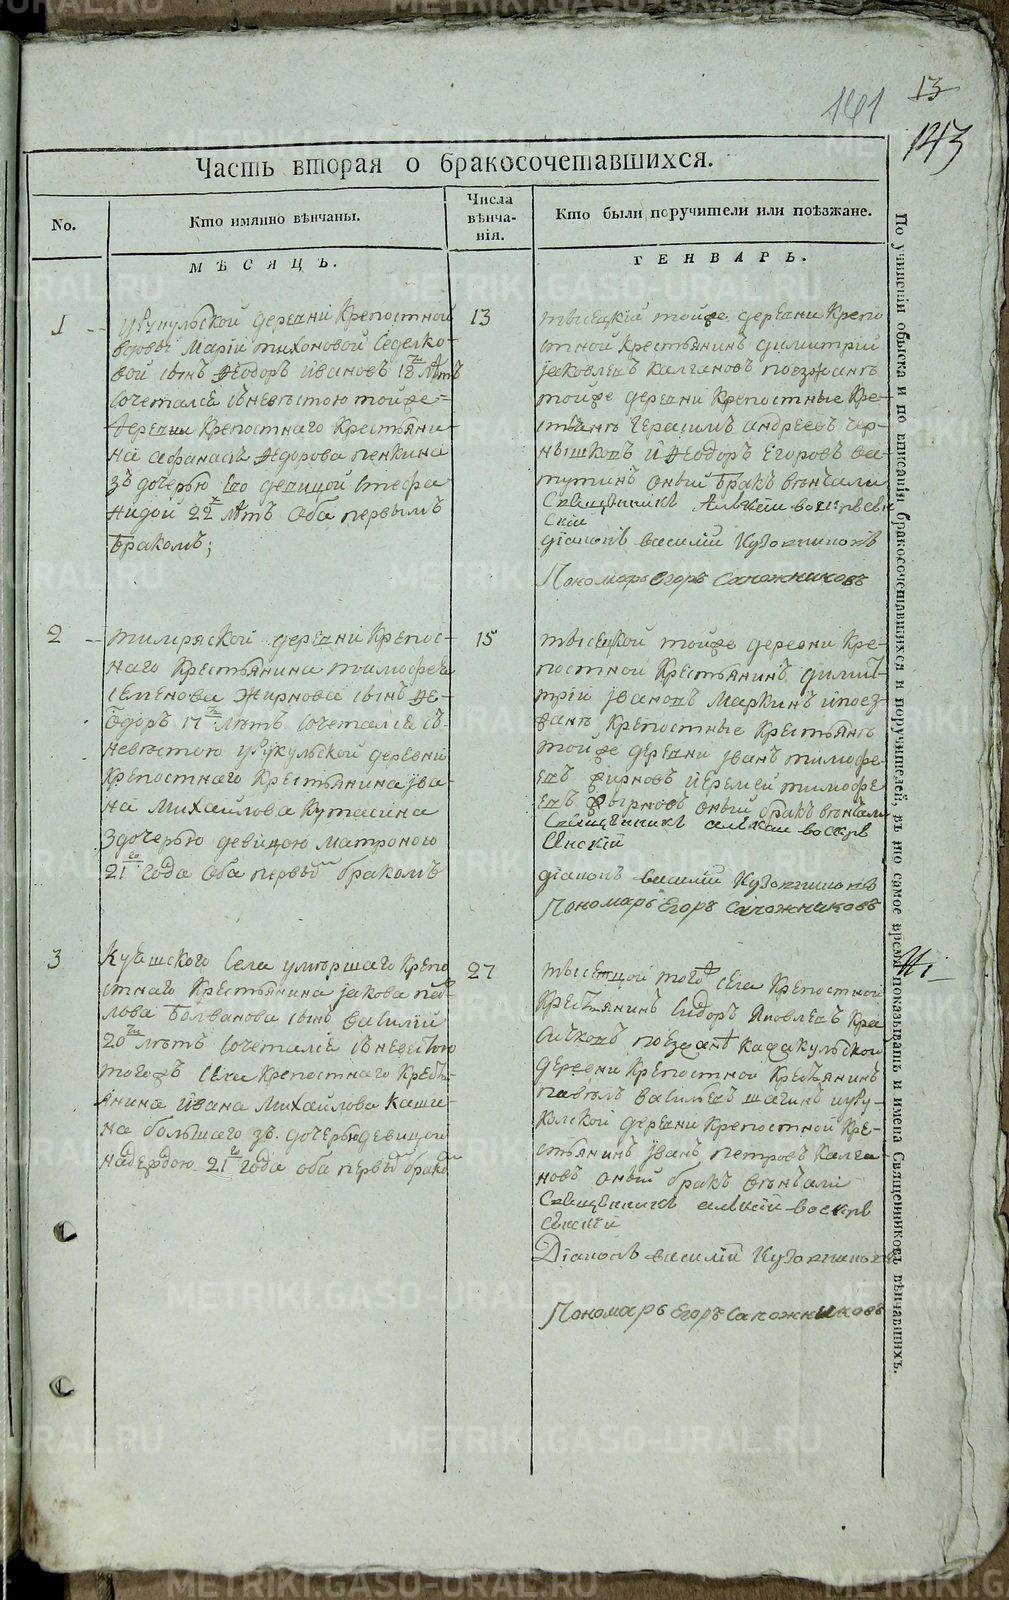 13
141
143
Часть вторая о бракосочетавшихся.
No.
Кто имянно вѣнчаны.
Числа вѣнча-нія.
Кто были поручители или поѣзжане.
МѢСЯЦЪ.
ГЕНВАРЬ.
1
деревни крепостной
вдовы Марiи тихоновой Седелко-
вой сынъ Ѳеодоръ Ивановъ 18 лѣтъ
сочетался съ невѣстою тойже
деревни крепостнаго крестьяни-
на афанасья Ѳедорова пенкина
зъ дочерью его девицой стефа
нидой 22 лѣтъ оба первымъ
бракомъ;
13
тысецкій тойже деревни крепо
стной крестьянинъ димитрий
яковлевъ калгановъ поезжанъ
тойже деревни крепостные кре-
стьянъ Герасимъ андреевъ чер-
нышковъ и Ѳеодоръ Егоровъ ва-
тутинъ оный бракъ вѣнчали
Священникъ Алексiй воскресен
скiй
дiаконъ василiй
Пономарь Егоръ Сапожниковъ
2
деревни крепос-
наго крестьянина тимофея
семенова жирнова сынъ Ѳе-
одоръ 17 лѣтъ сочетался съ
невѣстою деревни
крепостнаго крестьянина ива-
на михайлова кутасина
здочерью девицою матроною
21 года оба первый бракомъ
15
тысецкой тойже деревни кре-
постной крестьянинъ димит-
трiй ивановъ маркинъ и поез-
жанъ крепостные крестьянъ
тойже деревни иванъ тимофе-
евъ жирновъ и еремей тимофе
евъ жырновъ оный бракъ вѣнчали
Священникъ алексiй воскре
сенскiй
дiаконъ василiй
Пономарь Егоръ Сапожниковъ
3
села умершаго крепо
стнаго крестьянина якова пав-
лова Болванова сынъ василий
20 лѣтъ сочетался съ невѣстою
тогожъ села крепостнаго кресть-
янина ивана михайлова каши-
на большаго зъ дочерью девицой
надеждою 21 года оба первый бракомъ
27
тысецкой того села крепостной
крестьянинъ Сидоръ Яковлевъ кра
силковъ поезжанъ
деревни крепостной крестьянинъ
павелъ васильевъ шагинъ
деревни крепостной кре-
стьянинъ иванъ петровъ калга-
новъ оный бракъ вѣнчали
Священникъ алексiй воскре
сенскiй
Дiаконъ василiй
Пономарь Егоръ Сапожниковъ
По учиненіи обыска и по вписаніи бракосочетавшихся и поручителей, въ то самое время показывать и имена Священниковъ вѣнчавшихъ.
METRIKI.GASO-URAL.RU